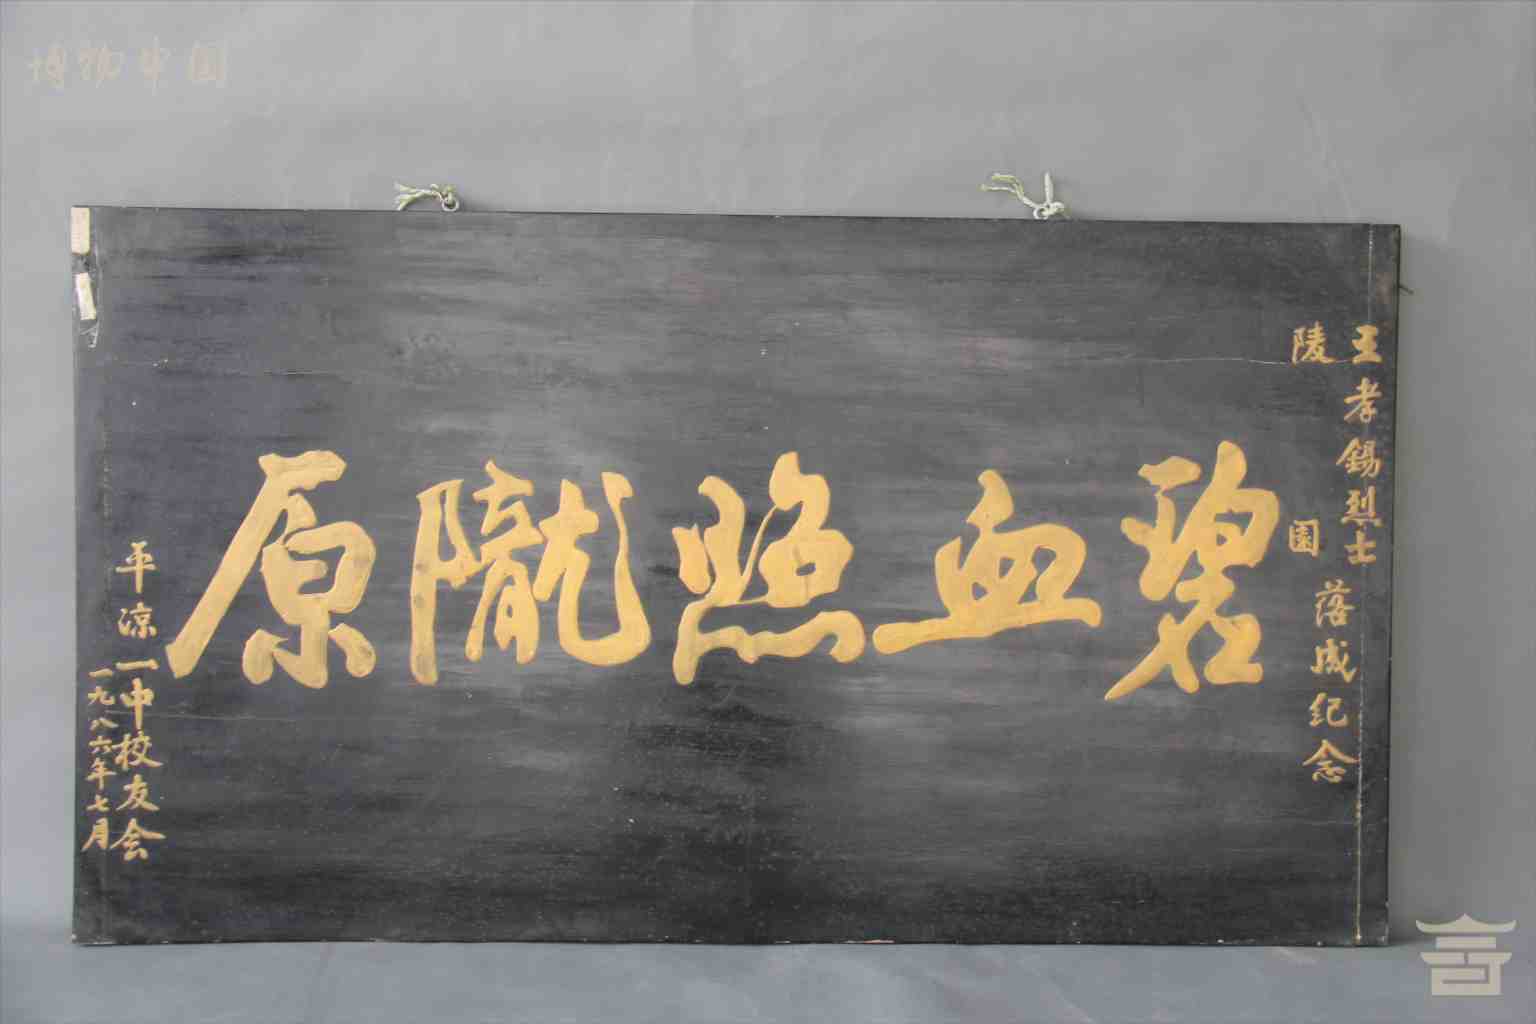 博物中国
王孝錫烈士
陵園
落成纪念
碧血照隴原
平凉一中校友会
一九八六年七月